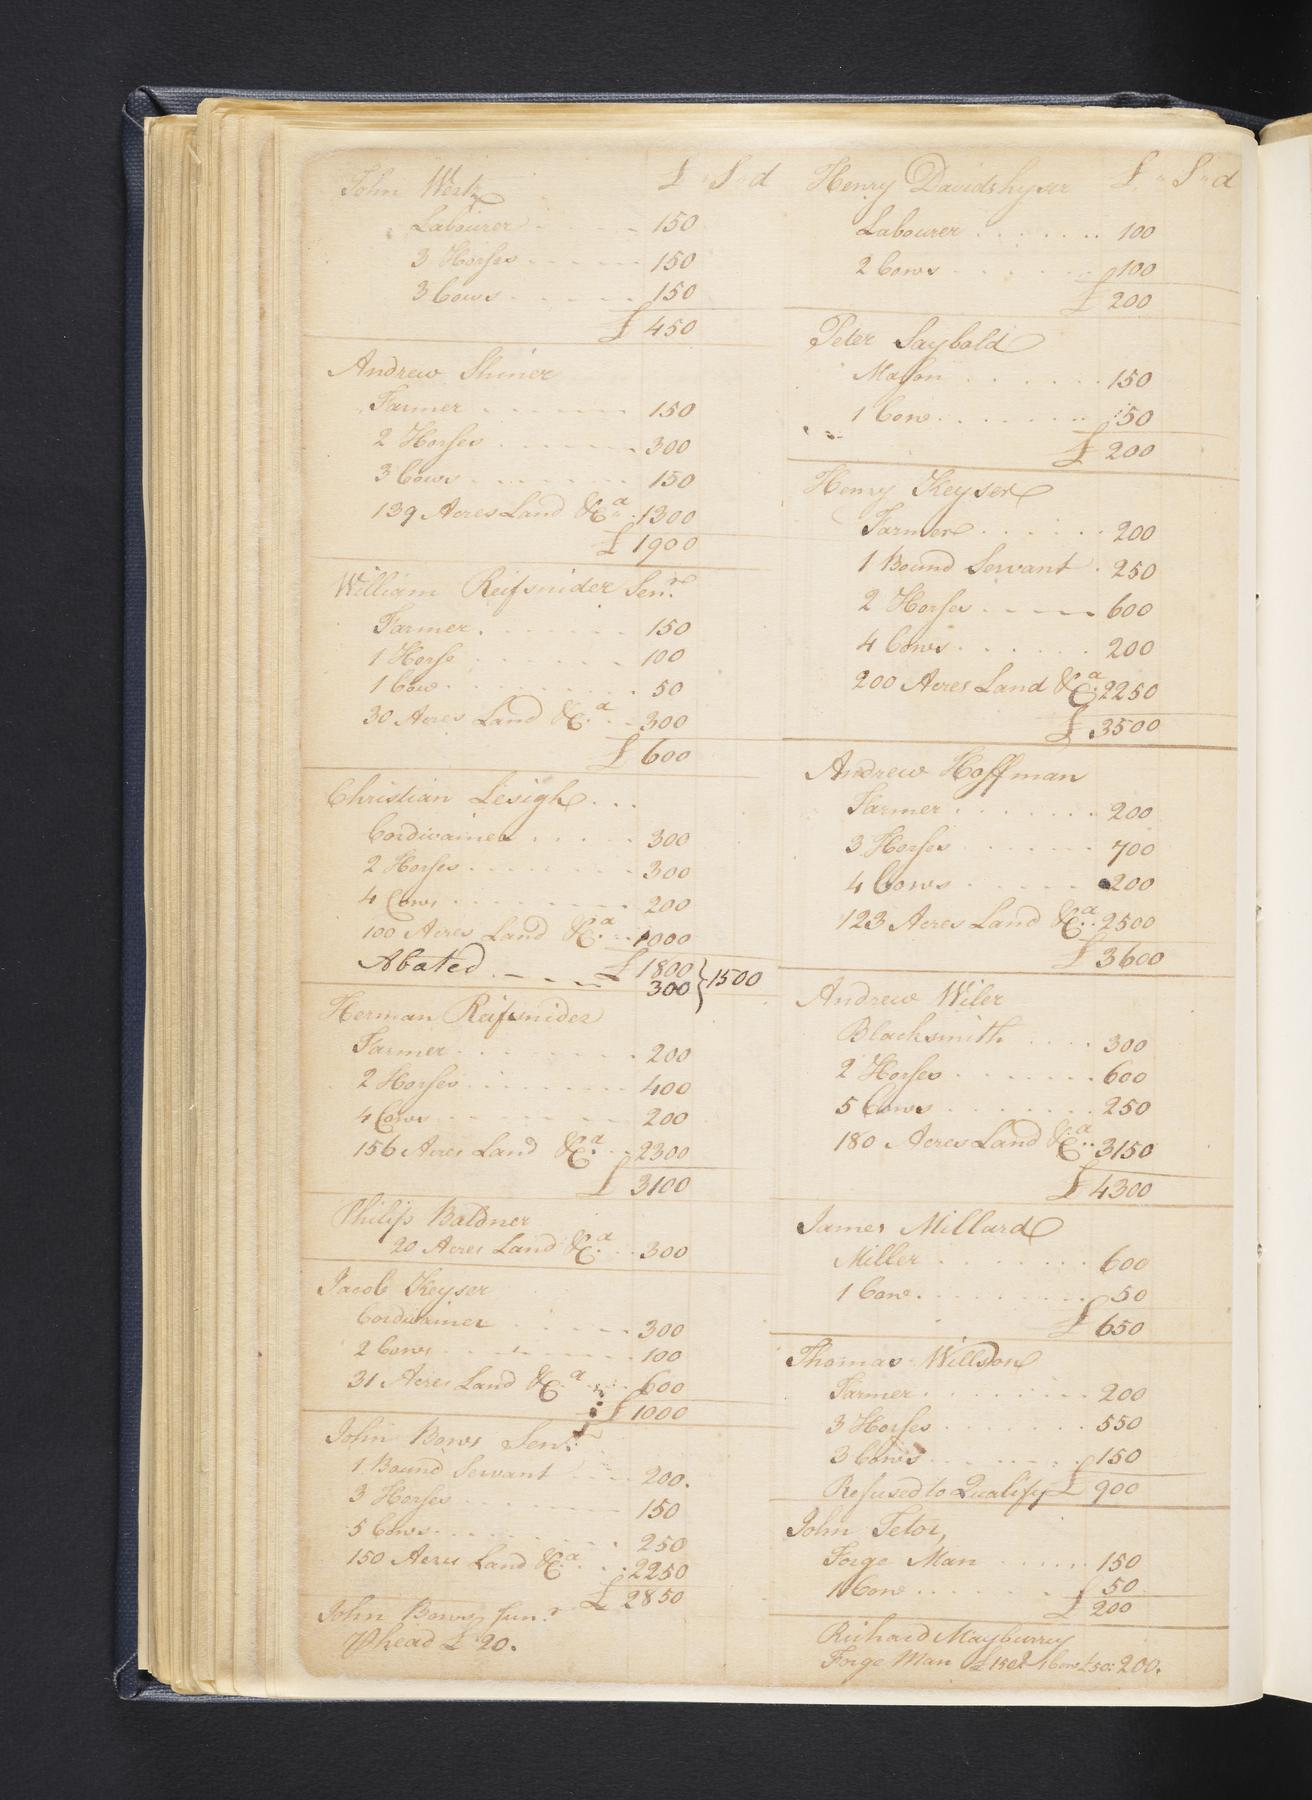 John Wertz £ S d
Labourer 150
3 Horses 150
3 Cows 150
£ 450
Andrew Shiner
Farmer 150
2 Horses 300
3 Cows 150
139 Acres Land &Ca 1300
£ 1900
William Reifsnider Senr
Farmer 150
1 Horse 100
1 Cow 50
30 Acres Land &Ca 300
£ 600
Christian Lesigh
Cordwainer 300
2 Horses 300
4 Cows 200
100 Acres Land &Ca 1000
£ 1800
Abated 300 } 1500
Herman Reifsnider
Farmer 200
2 Horses 400
4 Cows 200
156 Acres Land &Ca 2300
£ 3100
Philip Baldner
20 Acres Land &Ca 300
Jacob Keyser
Cordwainer 300
2 Cows 100
31 Acres Land &Ca 600
£ 1000
John Bows Senr
1 Bound Servant 200.
3 Horses 150
5 Cows 250
150 Acres Land &Ca 2250
£ 2850
John Bows Junr
P head £ 20.
Henry Davidshyser £ S d
Labourer 100
2 Cows 100
£ 200
Peter Saybold
Mason 150
1 Cow 50
£ 200
Henry Keyser
Farmer 200
1 Bound Servant 250
2 Horses 600
4 Cows 200
200 Acres Land &Ca 2250
£ 3500
Andrew Hoffman
Farmer 200
3 Horses 700
4 Cows 200
123 Acres Land &Ca 2500
£ 3600
Andrew Wiler
Blacksmith 300
2 Horses 600
5 Cows 250
180 Acres Land &Ca 3150
£ 4300
James Millard
Miller 600
1 Cow 50
£ 650
Thomas Willson
Farmer 200
3 Horses 550
3 Cows 150
Refused to Qualify £ 900
John Tetor,
Forge Man 150
1 Cow 50
£ 200
Richard Mayburry
Forge Man £ 150 1 Cow £50: 200.